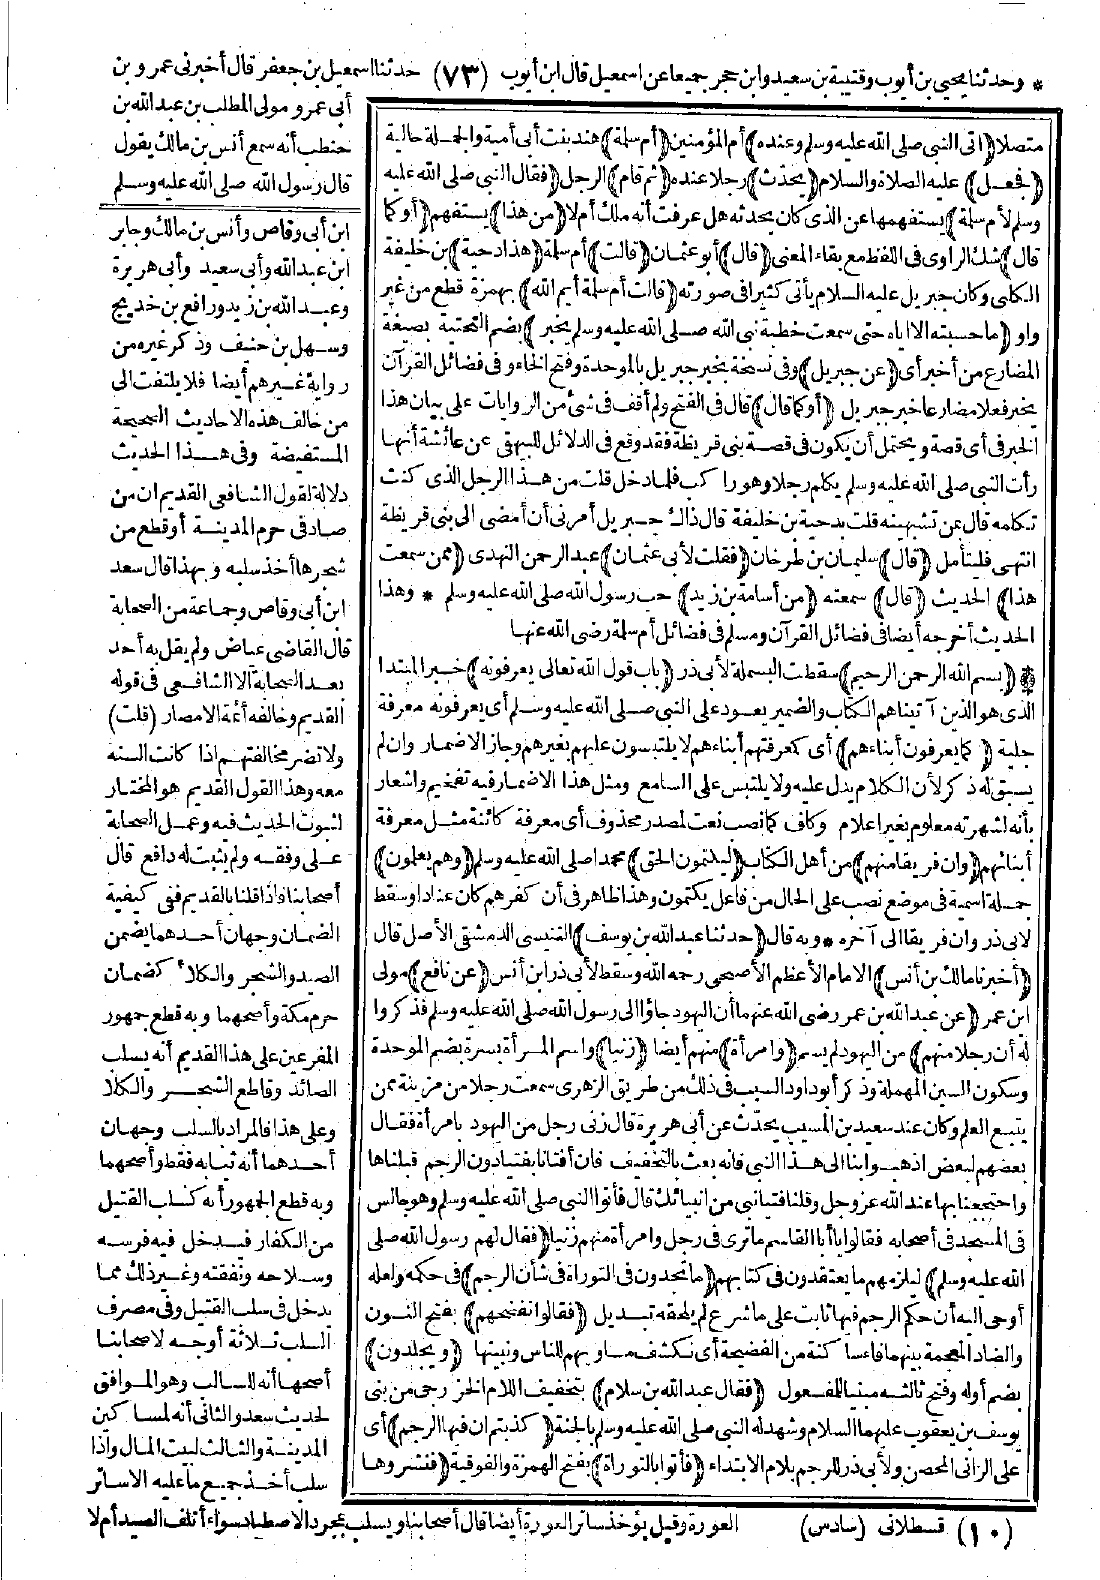 * وحدثنا يحيى بن أيوب وقتيبة بن سعيد وابن حجر جميعا عن اسمعيل قال ابن أيوب (٧٣) حدثنا اسمعيل بن جعفر قال أخبرنى عمرو بن
أبى عمرو مولى المطلب بن عبد الله بن
حنطب أنه سمع أنس بن مالك يقول
قال رسول الله صلى الله عليه وسلم
متصلا (أتى النبى صلى الله عليه وسلم وعنده) أم المؤمنين (أم سلمة) هند بنت أبى أمية والجملة حالية
(فجعل) عليه الصلاة والسلام (يحدث) رجلا عنده (ثم قام) الرجل (فقال النبى صلى الله عليه
وسلم لأم سلمة) يستفهمها عن الذى كان يحدثه هل عرفت أنه ملك أم لا (من هذا) يستفهم (أو كما
قال) شك الراوى فى اللفظ مع بقاء المعنى (قال) أبو عثمان (قالت) أم سلمة (هذا دحية) بن خليفة
الكلبى وكان جبريل عليه السلام يأتى كثيرا فى صورته (قالت أم سلمة أيم الله) بهمزة قطع من غير
واو (ما حسبته الا اياه حتى سمعت خطبة نبى الله صلى الله عليه وسلم يخبر) بضم التحتية بصيغة
المضارع من أخبر أى (عن جبريل) وفى نسخة بخبر جبريل بالموحدة وفتح الخاء وفى فضائل القرآن
يخبر فعلا مضارعا خبر جبريل (أو كما قال) قال فى الفتح ولم أقف فى شئ من الروايات على بيان هذا
الخبر فى أى قصة ويحتمل أن يكون فى قصة بنى قريظة فقد وقع فى الدلائل للبيهقى عن عائشة أنها
رأت النبى صلى الله عليه وسلم يكلم رجلا وهو راكب فلما دخل قلت من هذا الرجل الذى كنت
تكلمه قال بمن تشبهينه قلت بدحية بن خليفة قال ذاك جبريل أمرنى أن أمضى الى بنى قريظة
انتهى فليتأمل (قال) سليمان بن طرخان (فقلت لأبى عثمان) عبد الرحمن النهدى (ممن سمعت
هذا) الحديث (قال) سمعته (من أسامة بن زيد) حب رسول الله صلى الله عليه وسلم * وهذا
الحديث أخرجه أيضا فى فضائل القرآن ومسلم فى فضائل أم سلمة رضى الله عنها
(بسم الله الرحمن الرحيم) سقطت البسملة لأبى ذر (باب قول الله تعالى يعرفونه) خبر المبتدا
الذى هو الذين آتيناهم الكتاب والضمير يعود على النبى صلى الله عليه وسلم أى يعرفونه معرفة
جلية (كما يعرفون أبناءهم) أى كمعرفتهم أبناءهم لا يلتبسون عليهم بغيرهم وجاز الاضمار وان لم
يسبق له ذكر لأن الكلام يدل عليه ولا يلتبس على السامع ومثل هذا الاضمار فيه تفخيم واشعار
بأنه لشهرته معلوم بغير اعلام وكاف كما نصب نعت لمصدر محذوف أى معرفة كائنة مثل معرفة
أبنائهم (وان فريقا منهم) من أهل الكتاب (ليكتمون الحق) محمدا صلى الله عليه وسلم (وهم يعلمون)
جملة اسمية فى موضع نصب على الحال من فاعل يكتمون وهذا ظاهر فى أن كفرهم كان عنادا وسقط
لابى ذر وان فريقا الى آخره * وبه قال (حدثنا عبد الله بن يوسف) التنيسى الدمشقى الأصل قال
(أخبرنا مالك بن أنس) الامام الأعظم الأصبحى رحمه الله وسقط لأبى ذر ابن أنس (عن نافع) مولى
ابن عمر (عن عبد الله بن عمر رضى الله عنهما أن اليهود جاؤا الى رسول الله صلى الله عليه وسلم فذكروا
له أن رجلا منهم) من اليهود لم يسم (وامرأة) منهم أيضا (زنيا) واسم المرأة بسرة بضم الموحدة
وسكون السين المهملة وذكر أبو داود السبب فى ذلك من طريق الزهرى سمعت رجلا من مزينة ممن
يتبع العلم وكان عند سعيد بن المسيب يحدث عن أبى هريرة قال زنى رجل من اليهود بامرأة فقال
بعضهم لبعض اذهبوا بنا الى هذا النبى فانه بعث بالتخفيف فان أفتانا بفتيا دون الرجم قبلناها
واحتججنا بها عند الله عز وجل وقلنا فتيا نبى من انبيائك قال فأتوا النبى صلى الله عليه وسلم وهو جالس
فى المسجد فى أصحابه فقالوا يا أبا القاسم ما ترى فى رجل وامرأة منهم زنيا (فقال لهم رسول الله صلى
الله عليه وسلم) ليلزمهم ما يعتقدون فى كتابهم (ما تجدون فى التوراة فى شأن الرجم) فى حكمه ولعله
أوحى اليه أن حكم الرجم فيها ثابت على ما شرع لم يلحقه تبديل (فقالوا نفضحهم) بفتح النون
والضاد المعجمة بينهما فاء ساكنة من الفضيحة أى نكشف مساويهم للناس ونبينها (ويجلدون)
بضم أوله وفتح ثالثه مبنيا للمفعول (فقال عبد الله بن سلام) بتخفيف اللام الخزرجى من بنى
يوسف بن يعقوب عليهما السلام وشهد له النبى صلى الله عليه وسلم بالجنة (كذبتم ان فيها الرجم) أى
على الزانى المحصن ولأبى ذر للرجم بلام الابتداء (فأتوا بالتوراة) بفتح الهمزة والفوقية (فنشروها
ابن أبى وقاص وأنس بن مالك وجابر
ابن عبد الله وأبى سعيد وأبى هريرة
وعبد الله بن زيد ورافع بن خديج
وسهل بن حنيف وذكر غيره من
رواية غيرهم أيضا فلا يلتفت الى
من خالف هذه الاحاديث الصحيحة
المستفيضة وفى هذا الحديث
دلالة لقول الشافعى القديم ان من
صاد فى حرم المدينة أو قطع من
شجرها أخذ سلبه وبهذا قال سعد
ابن أبى وقاص وجماعة من الصحابة
قال القاضى عياض ولم يقل به أحد
بعد الصحابة الا الشافعى فى قوله
القديم وخالفه أئمة الامصار (قلت)
ولا تضر مخالفتهم اذا كانت السنه
معه وهذا القول القديم هو المختار
لثبوت الحديث فيه وعمل الصحابة
على وفقه ولم يثبت له دافع قال
أصحابنا فاذا قلنا بالقديم ففى كيفية
الضمان وجهان أحدهما يضمن
الصيد والشجر والكلأ كضمان
حرم مكة وأصحهما وبه قطع جمهور
المفرعين على هذا القديم أنه يسلب
الصائد وقاطع الشجر والكلا
وعلى هذا فالمراد بالسلب وجهان
أحدهما أنه ثيابه فقط وأصحهما
وبه قطع الجمهور أنه كسلب القتيل
من الكفار فيدخل فيه فرسه
وسلاحه ونفقته وغير ذلك مما
يدخل فى سلب القتيل وفى مصرف
السلب ثلاثة أوجه لاصحابنا
أصحها أنه للسالب وهو الموافق
لحديث سعد والثانى أنه لمساكين
المدينة والثالث لبيت المال واذا
سلب أخذ جميع ما عليه الا ساتر
العورة وقيل يؤخذ ساتر العورة أيضا قال أصحابنا ويسلب بمجرد الاصطياد سواء أتلف الصيد أم لا
(١٠) قسطلانى (سادس)